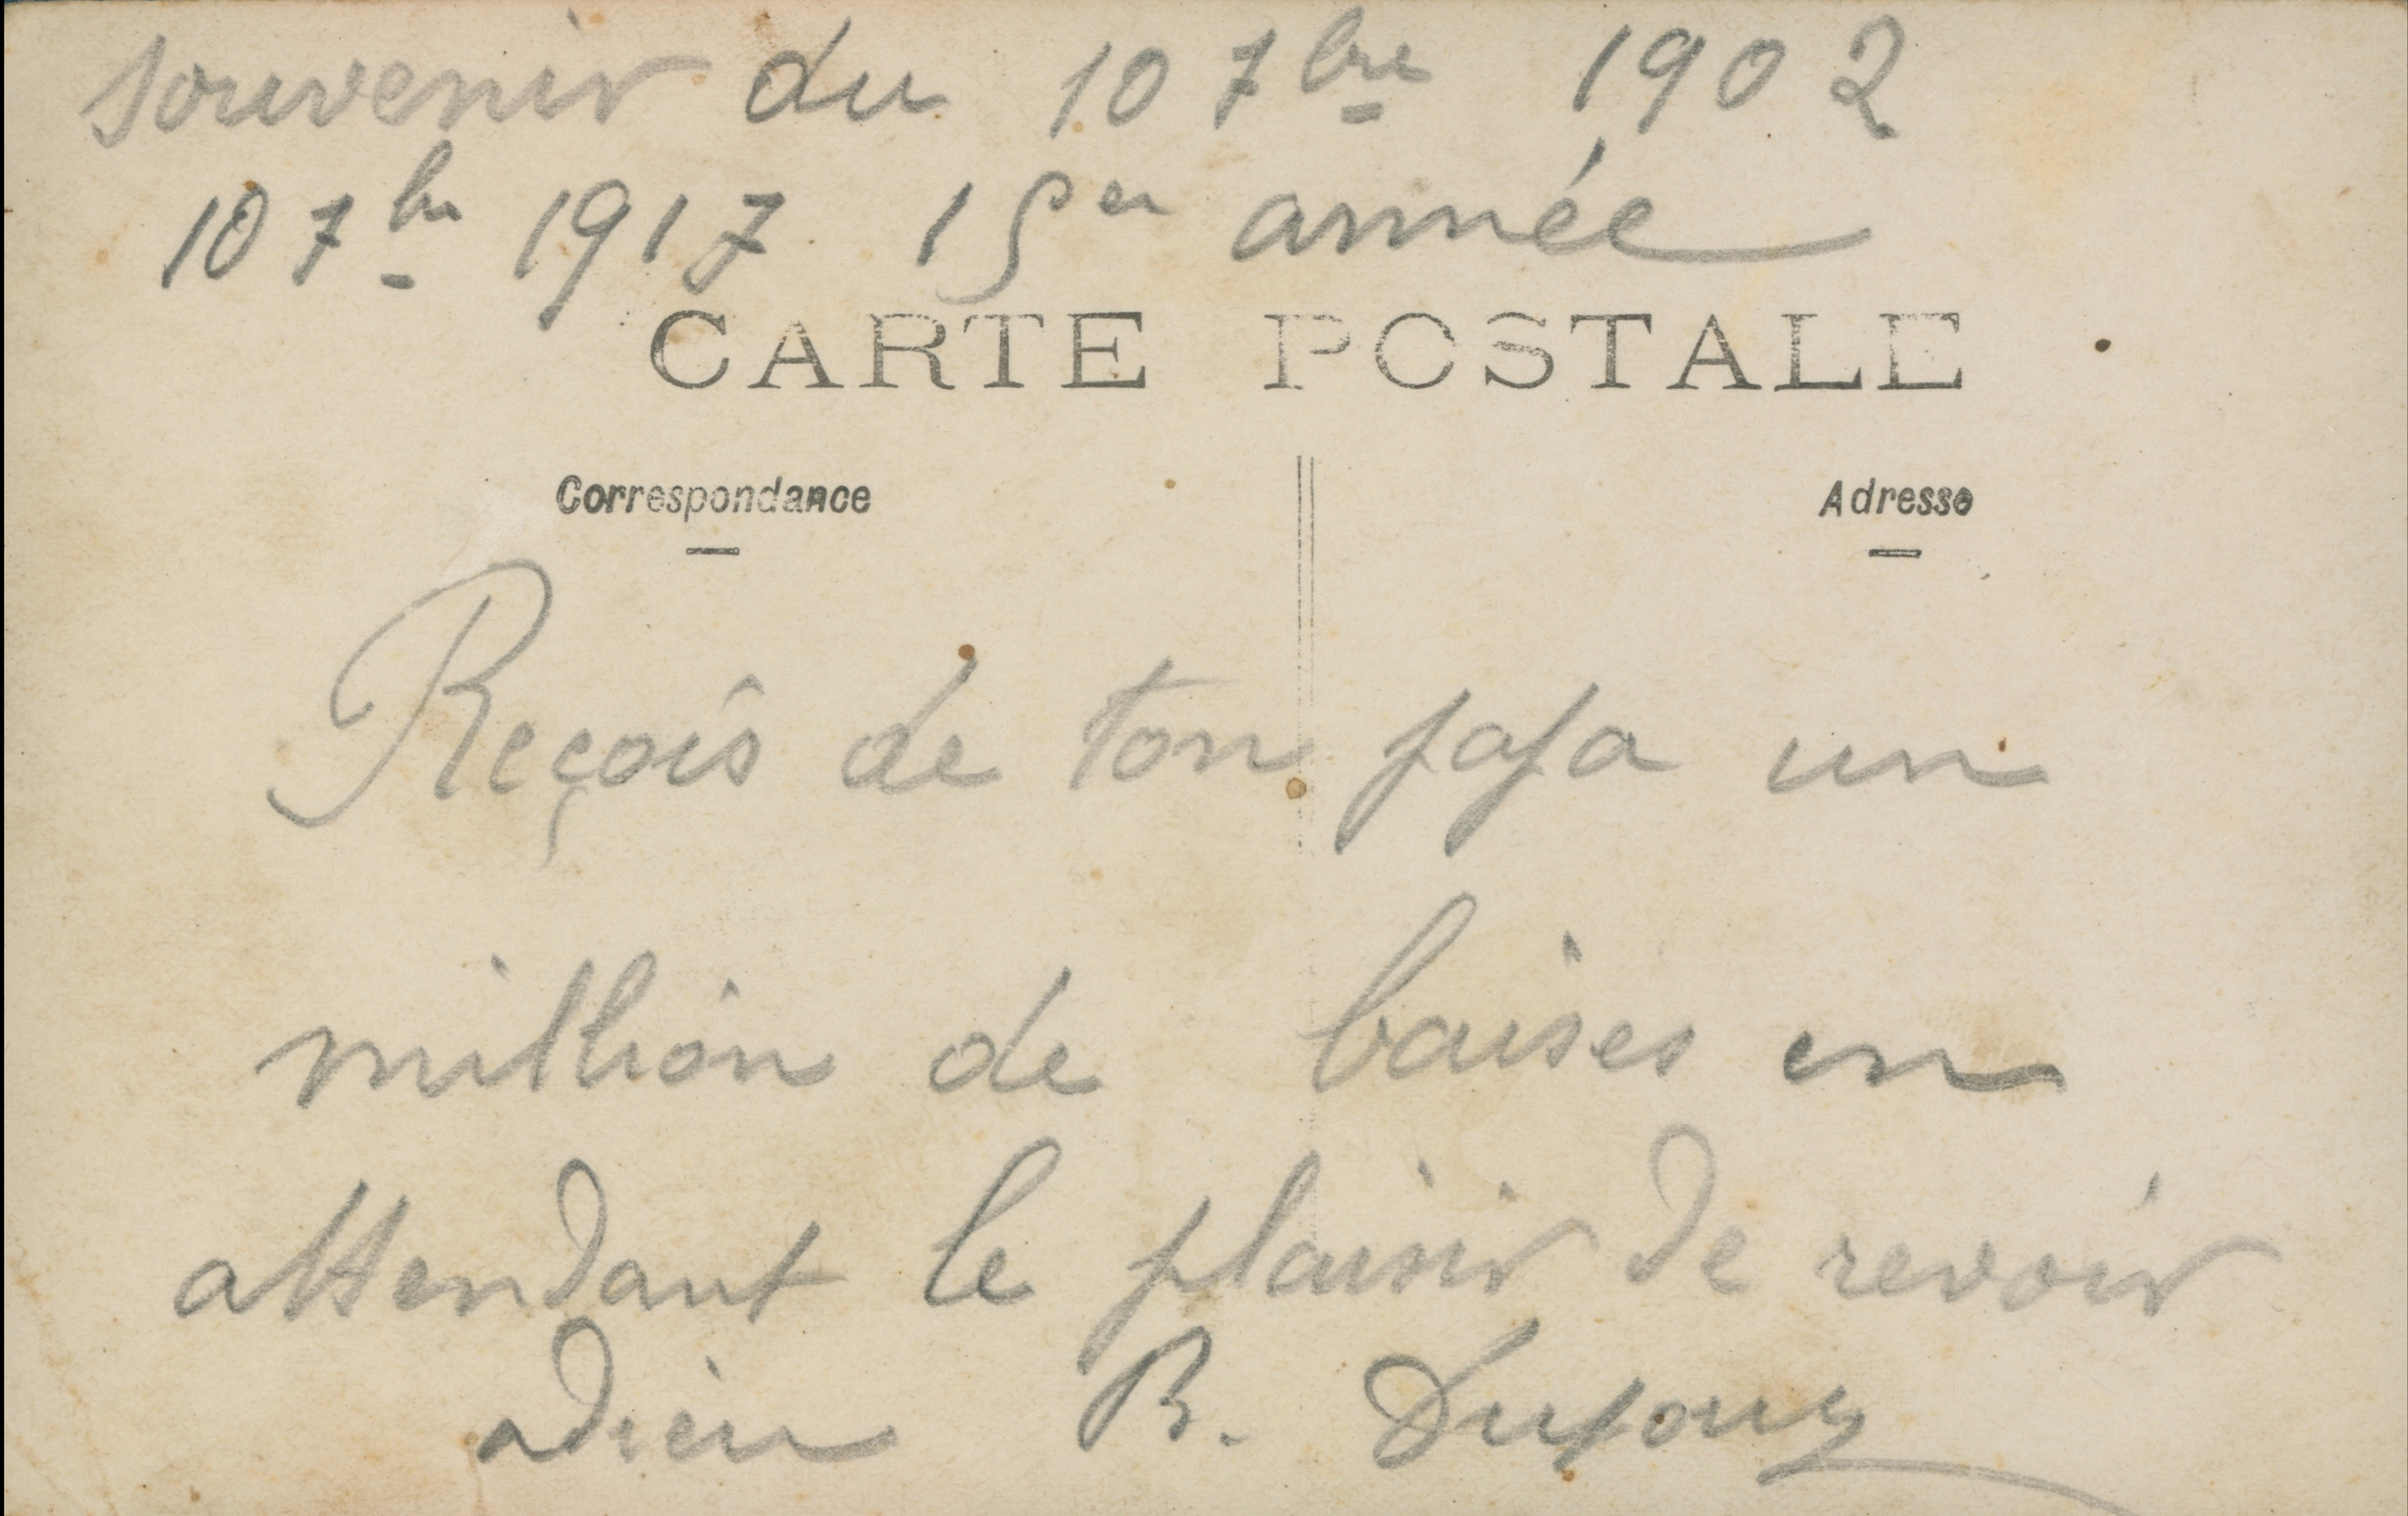 souvenir du 10 7bre 1902
10 7bre 1917 15en année
CARTE POSTALE
Correspondance
Adresse
Reçois de ton papa un
million de baises en
attendant le plaisir de revoir
adieu B. Dufour